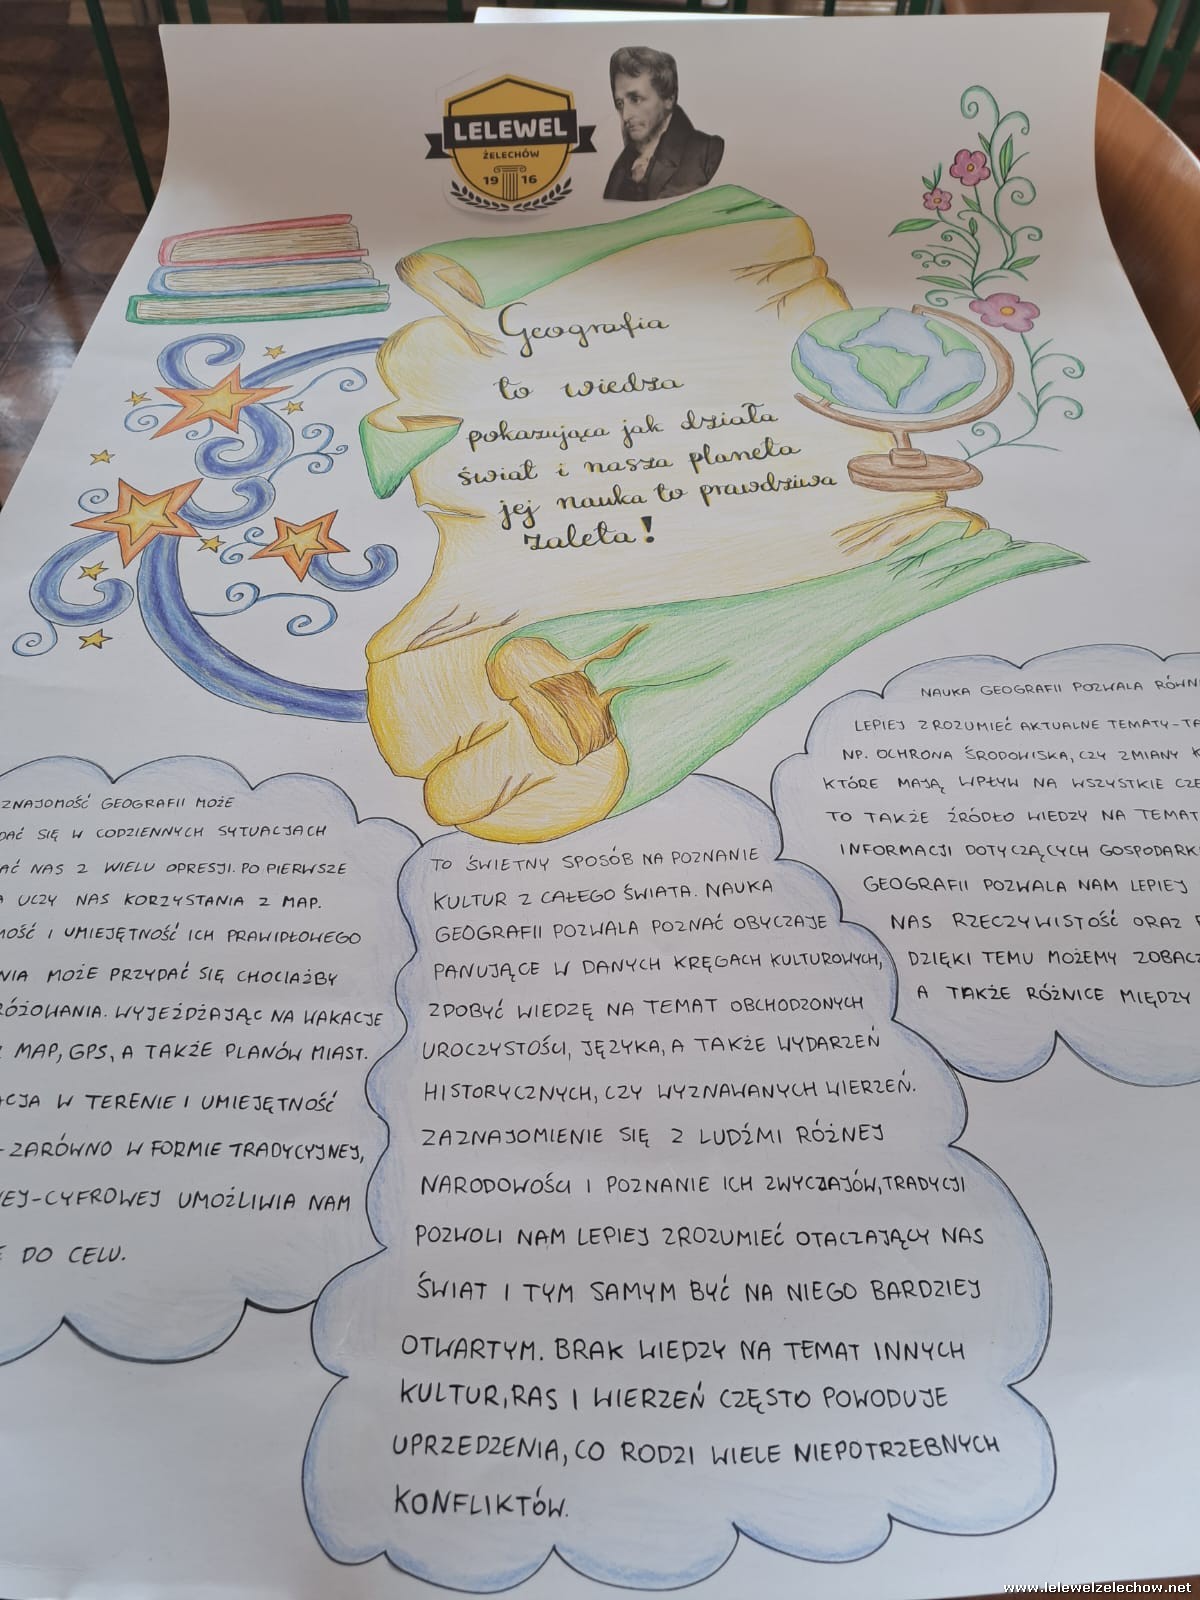 LELEWEL
ŻELECHÓW
19 16
Geografia
to wiedza
pokazująca jak działa
świat i nasza planeta
jej nauka to prawdziwa
zaleta!
ZNAJOMOŚĆ GEOGRAFII MOŻE
SIĘ W CODZIENNYCH SYTUACJACH
NAS Z WIELU OPRESJI. PO PIERWSZE
UCZY NAS KORZYSTANIA Z MAP.
I UMIEJĘTNOŚĆ ICH PRAWIDŁOWEGO
MOŻE PRZYDAĆ SIĘ CHOCIAŻBY
WYJEŻDŻAJĄC NA WAKACJE
MAP, GPS, A TAKŻE PLANÓW MIAST.
W TERENIE I UMIEJĘTNOŚĆ
- ZARÓWNO W FORMIE TRADYCYJNEJ,
-CYFROWEJ UMOŻLIWIA NAM
DO CELU.
TO ŚWIETNY SPOSÓB NA POZNANIE
KULTUR Z CAŁEGO ŚWIATA. NAUKA
GEOGRAFII POZWALA POZNAĆ OBYCZAJE
PANUJĄCE W DANYCH KRĘGACH KULTUROWYCH,
ZDOBYĆ WIEDZĘ NA TEMAT OBCHODZONYCH
UROCZYSTOŚCI, JĘZYKA, A TAKŻE WYDARZEŃ
HISTORYCZNYCH, CZY WYZNAWANYCH WIERZEŃ.
ZAZNAJOMIENIE SIĘ Z LUDŹMI RÓŻNEJ
NARODOWOŚCI I POZNANIE ICH ZWYCZAJÓW, TRADYCJI
POZWOLI NAM LEPIEJ ZROZUMIEĆ OTACZAJĄCY NAS
ŚWIAT I TYM SAMYM BYĆ NA NIEGO BARDZIEJ
OTWARTYM. BRAK WIEDZY NA TEMAT INNYCH
KULTUR, RAS I WIERZEŃ CZĘSTO POWODUJE
UPRZEDZENIA, CO RODZI WIELE NIEPOTRZEBNYCH
KONFLIKTÓW.
NAUKA GEOGRAFII POZWALA
LEPIEJ ZROZUMIEĆ AKTUALNE TEMATY-
NP. OCHRONA ŚRODOWISKA, CZY ZMIANY
KTÓRE MAJĄ WPŁYW NA WSZYSTKIE
TO TAKŻE ŹRÓDŁO WIEDZY NA TEMAT
INFORMACJI DOTYCZĄCYCH
GEOGRAFII POZWALA NAM LEPIEJ
NAS RZECZYWISTOŚĆ ORAZ
DZIĘKI TEMU MOŻEMY
A TAKŻE RÓŻNICE MIĘDZY
www.lelewelzelechow.net